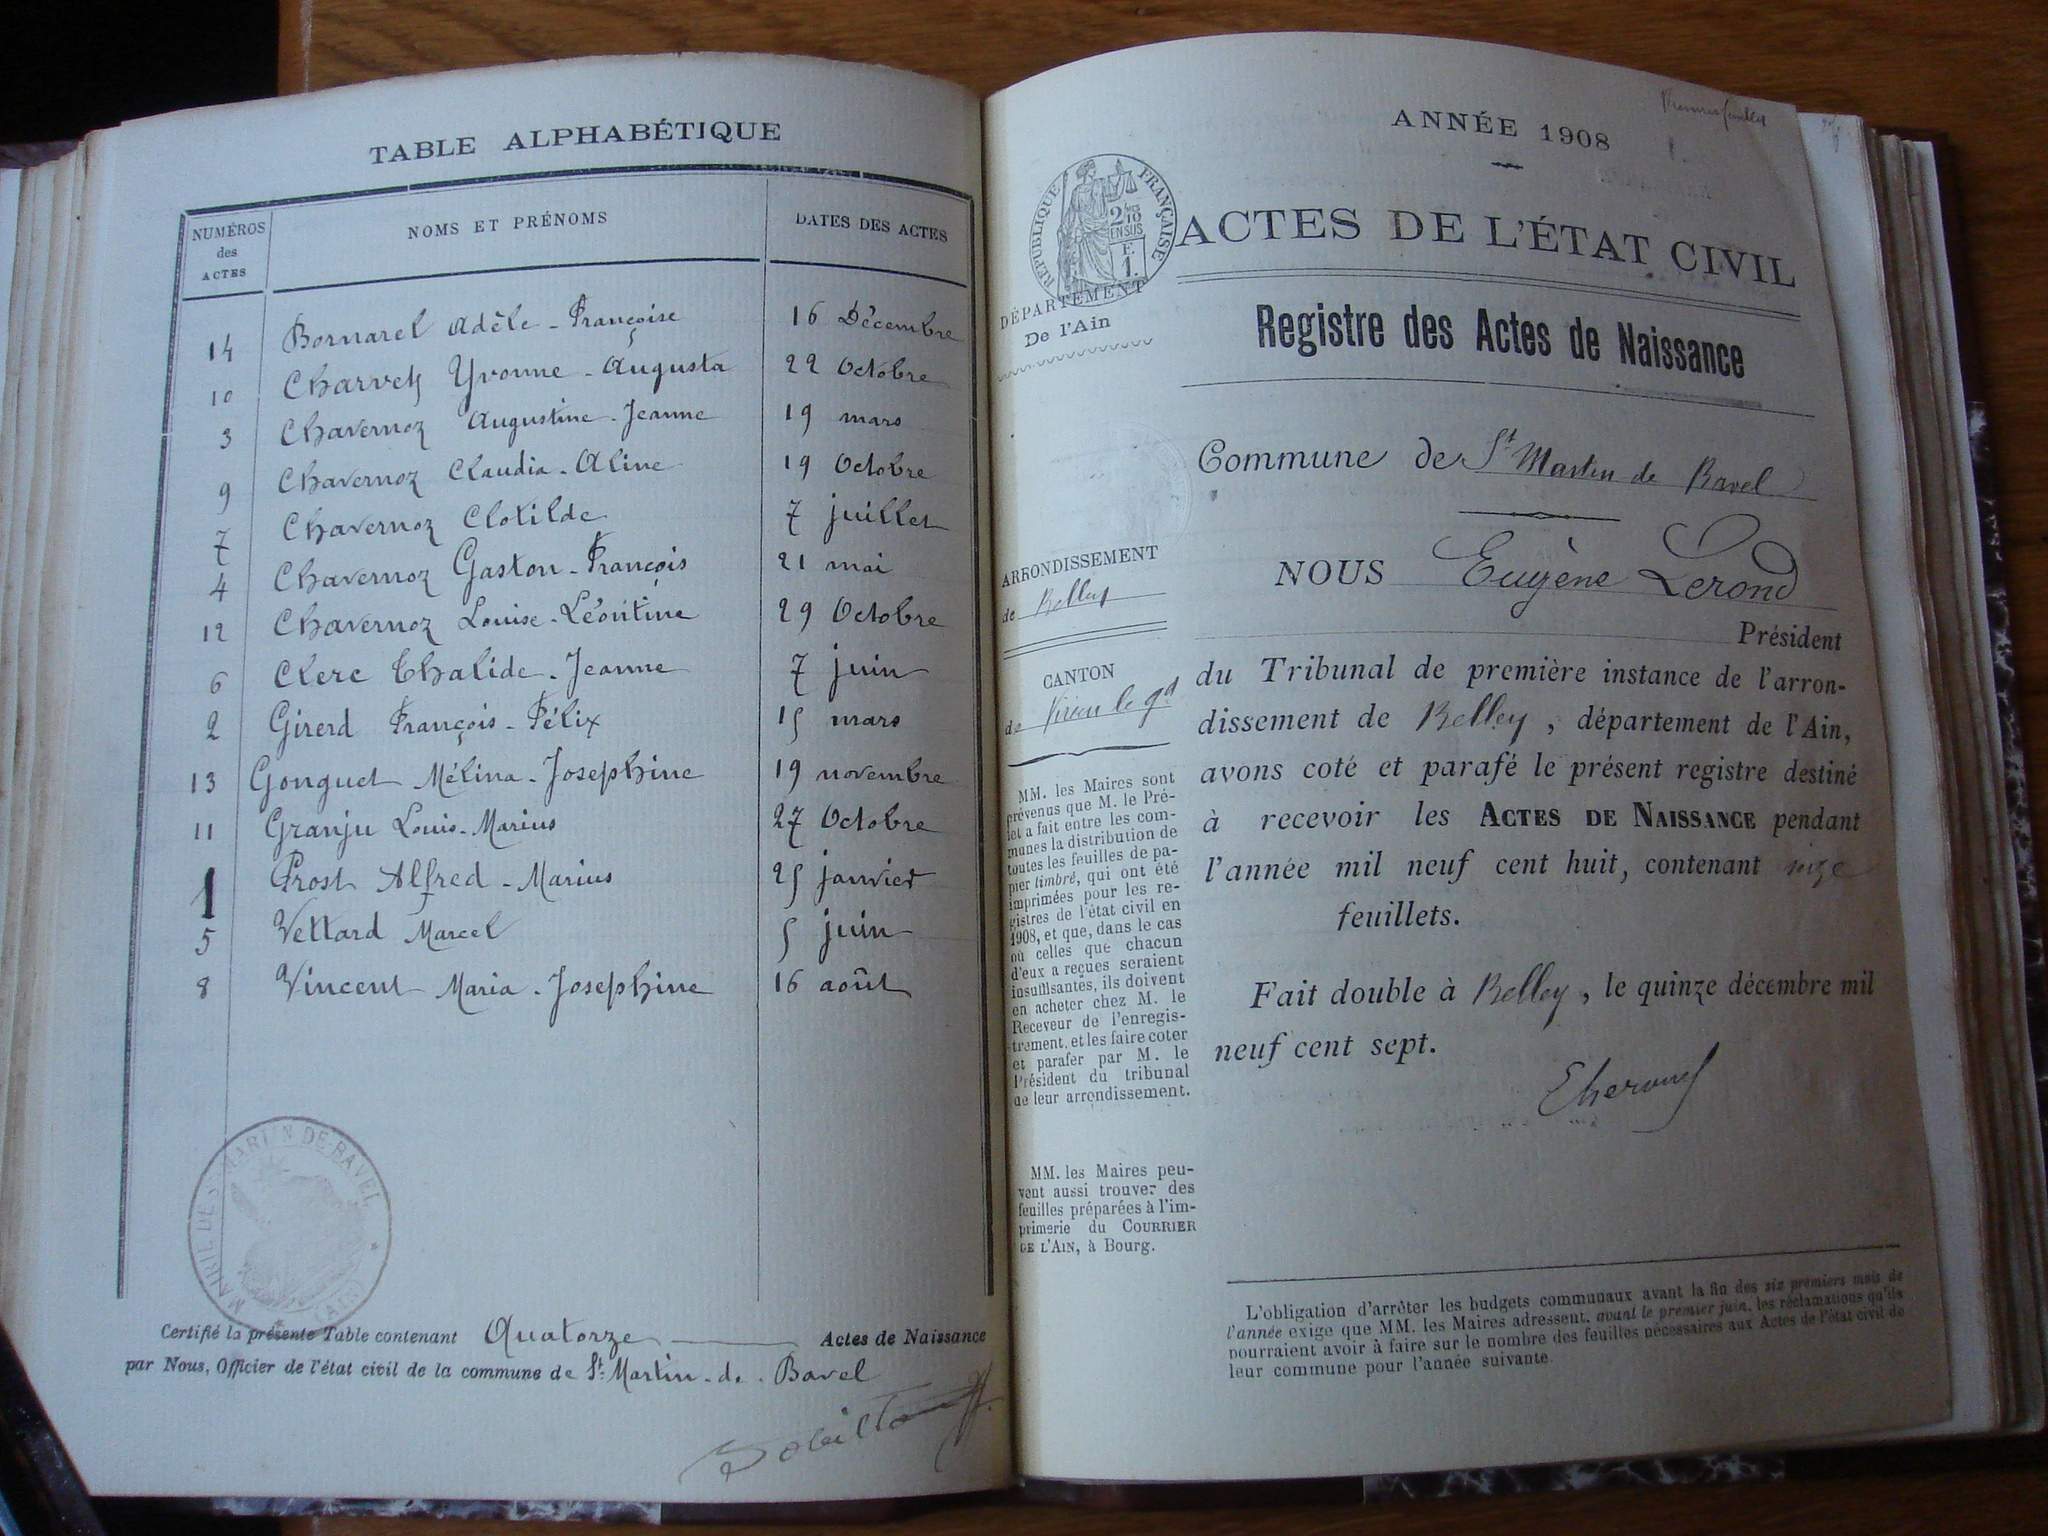 TABLE ALPHABÉTIQUE
NUMÉROS des ACTES NOMS ET PRÉNOMS DATES DES ACTES
14 Bornarel Adèle - Françoise 16 Décembre
10 Charvet Yvonne - Augusta 22 Octobre
3 Chavernoz Augustine - Jeanne 19 mars
9 Chavernoz Claudia - Aline 19 Octobre
7 Chavernoz Clotilde 7 juillet
4 Chavernoz Gaston - François 21 mai
12 Chavernoz Louise - Léontine 29 Octobre
6 Clerc Thalide - Jeanne 7 juin
2 Girerd François - Félix 15 mars
13 Gonguet Mélina - Josephine 19 novembre
11 Granju Louis - Marius 27 Octobre
1 Prost Alfred - Marius 25 janvier
5 Vettard Marcel 5 juin
8 Vincent Maria - Josephine 16 août
MAIRIE DE ST MARTIN DE BAVEL (AIN)
Certifié la présente Table contenant Quatorze Actes de Naissance
par Nous, Officier de l'état civil de la commune de St Martin - de - Bavel
Premier feuillet
ANNÉE 1908
RÉPUBLIQUE FRANÇAISE
ACTES DE L'ÉTAT CIVIL
DÉPARTEMENT
De l'Ain
Registre des Actes de Naissance
Commune de St Martin de Bavel
ARRONDISSEMENT
de Belley
CANTON
de Virieu le gd
MM. les Maires sont
prévenus que M. le Pré-
fet a fait entre les com-
munes la distribution de
toutes les feuilles de pa-
pier timbré, qui ont été
imprimées pour les re-
gistres de l'état civil en
1908, et que, dans le cas
où celles que chacun
d'eux a reçues seraient
insuffisantes, ils doivent
en acheter chez M. le
Receveur de l'enregis-
trement, et les faire coter
et parafer par M. le
Président du tribunal
de leur arrondissement.
MM. les Maires peu-
vent aussi trouver des
feuilles préparées à l'im-
primerie du COURRIER
DE L'AIN, à Bourg.
NOUS Eugène Lerond
Président
du Tribunal de première instance de l'arron-
dissement de Belley, département de l'Ain,
avons coté et parafé le présent registre destiné
à recevoir les ACTES DE NAISSANCE pendant
l'année mil neuf cent huit, contenant
feuillets.
Fait double à Belley, le quinze décembre mil
neuf cent sept.
L'obligation d'arrêter les budgets communaux avant la fin des six premiers mois de
l'année exige que MM. les Maires adressent, avant le premier juin, les réclamations qu'ils
pourraient avoir à faire sur le nombre des feuilles nécessaires aux Actes de l'état civil de
leur commune pour l'année suivante.